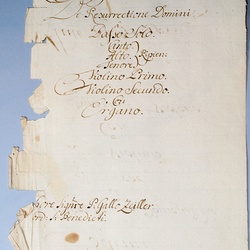 De Resurrectione Domini
Basso Solo.
Canto.
Alto. Ripien:
Tenore.
Violino Primo.
Violino Secundo.
Con
Organo.
Signre P. Gallo Zeiller
ord: S. Benedicti